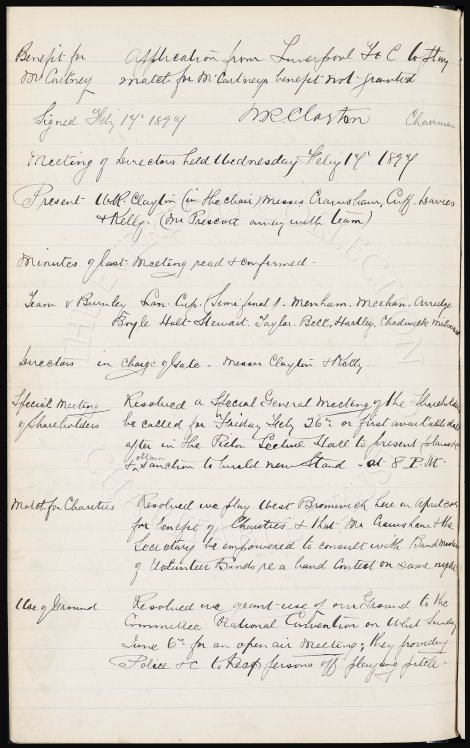 Benefit for Application from Liverpool F & C to play
McCartney match for McCartneys benefit not granted
Signed Feby 17th 1897 W.R. Clayton Chairman
Meeting of Directors held Wednesday Feby 17th 1897
Present W.R. Clayton (in the chair) Messrs Crawshaw, Cuff, Davies
& Kelly. (Mr Prescott away with team)
Minutes of last meeting read & confirmed.
Team v Burnley Lan. Cup. (Semi final). Menham. Meehan. Arridge.
Boyle Holt Stewart. Taylor. Bell, Hartley, Chadwick Milward
Directors in charge of Gate - Messrs Clayton & Kelly.
Special Meeting Resolved a Special General Meeting of the Shareholders
of Shareholders be called for Friday Feby 26th or first available date
after in the Picton Lecture Hall to present plans &c
& obtain sanction to build new Stand - at 8 P.M.
Match for Charities Resolved we play West Bromwich here in April
for benefit of Charities & that Mr Crawshaw & the
Secretary be empowered to consult with Band
of Volunteer Bands re a band Contest on same night
Use of Ground Resolved we grant use of our Ground to the
Committee National Convention on Whit Sunday
June 6th for an open air Meeting; they providing
Police &c to keep persons off playing pitch.